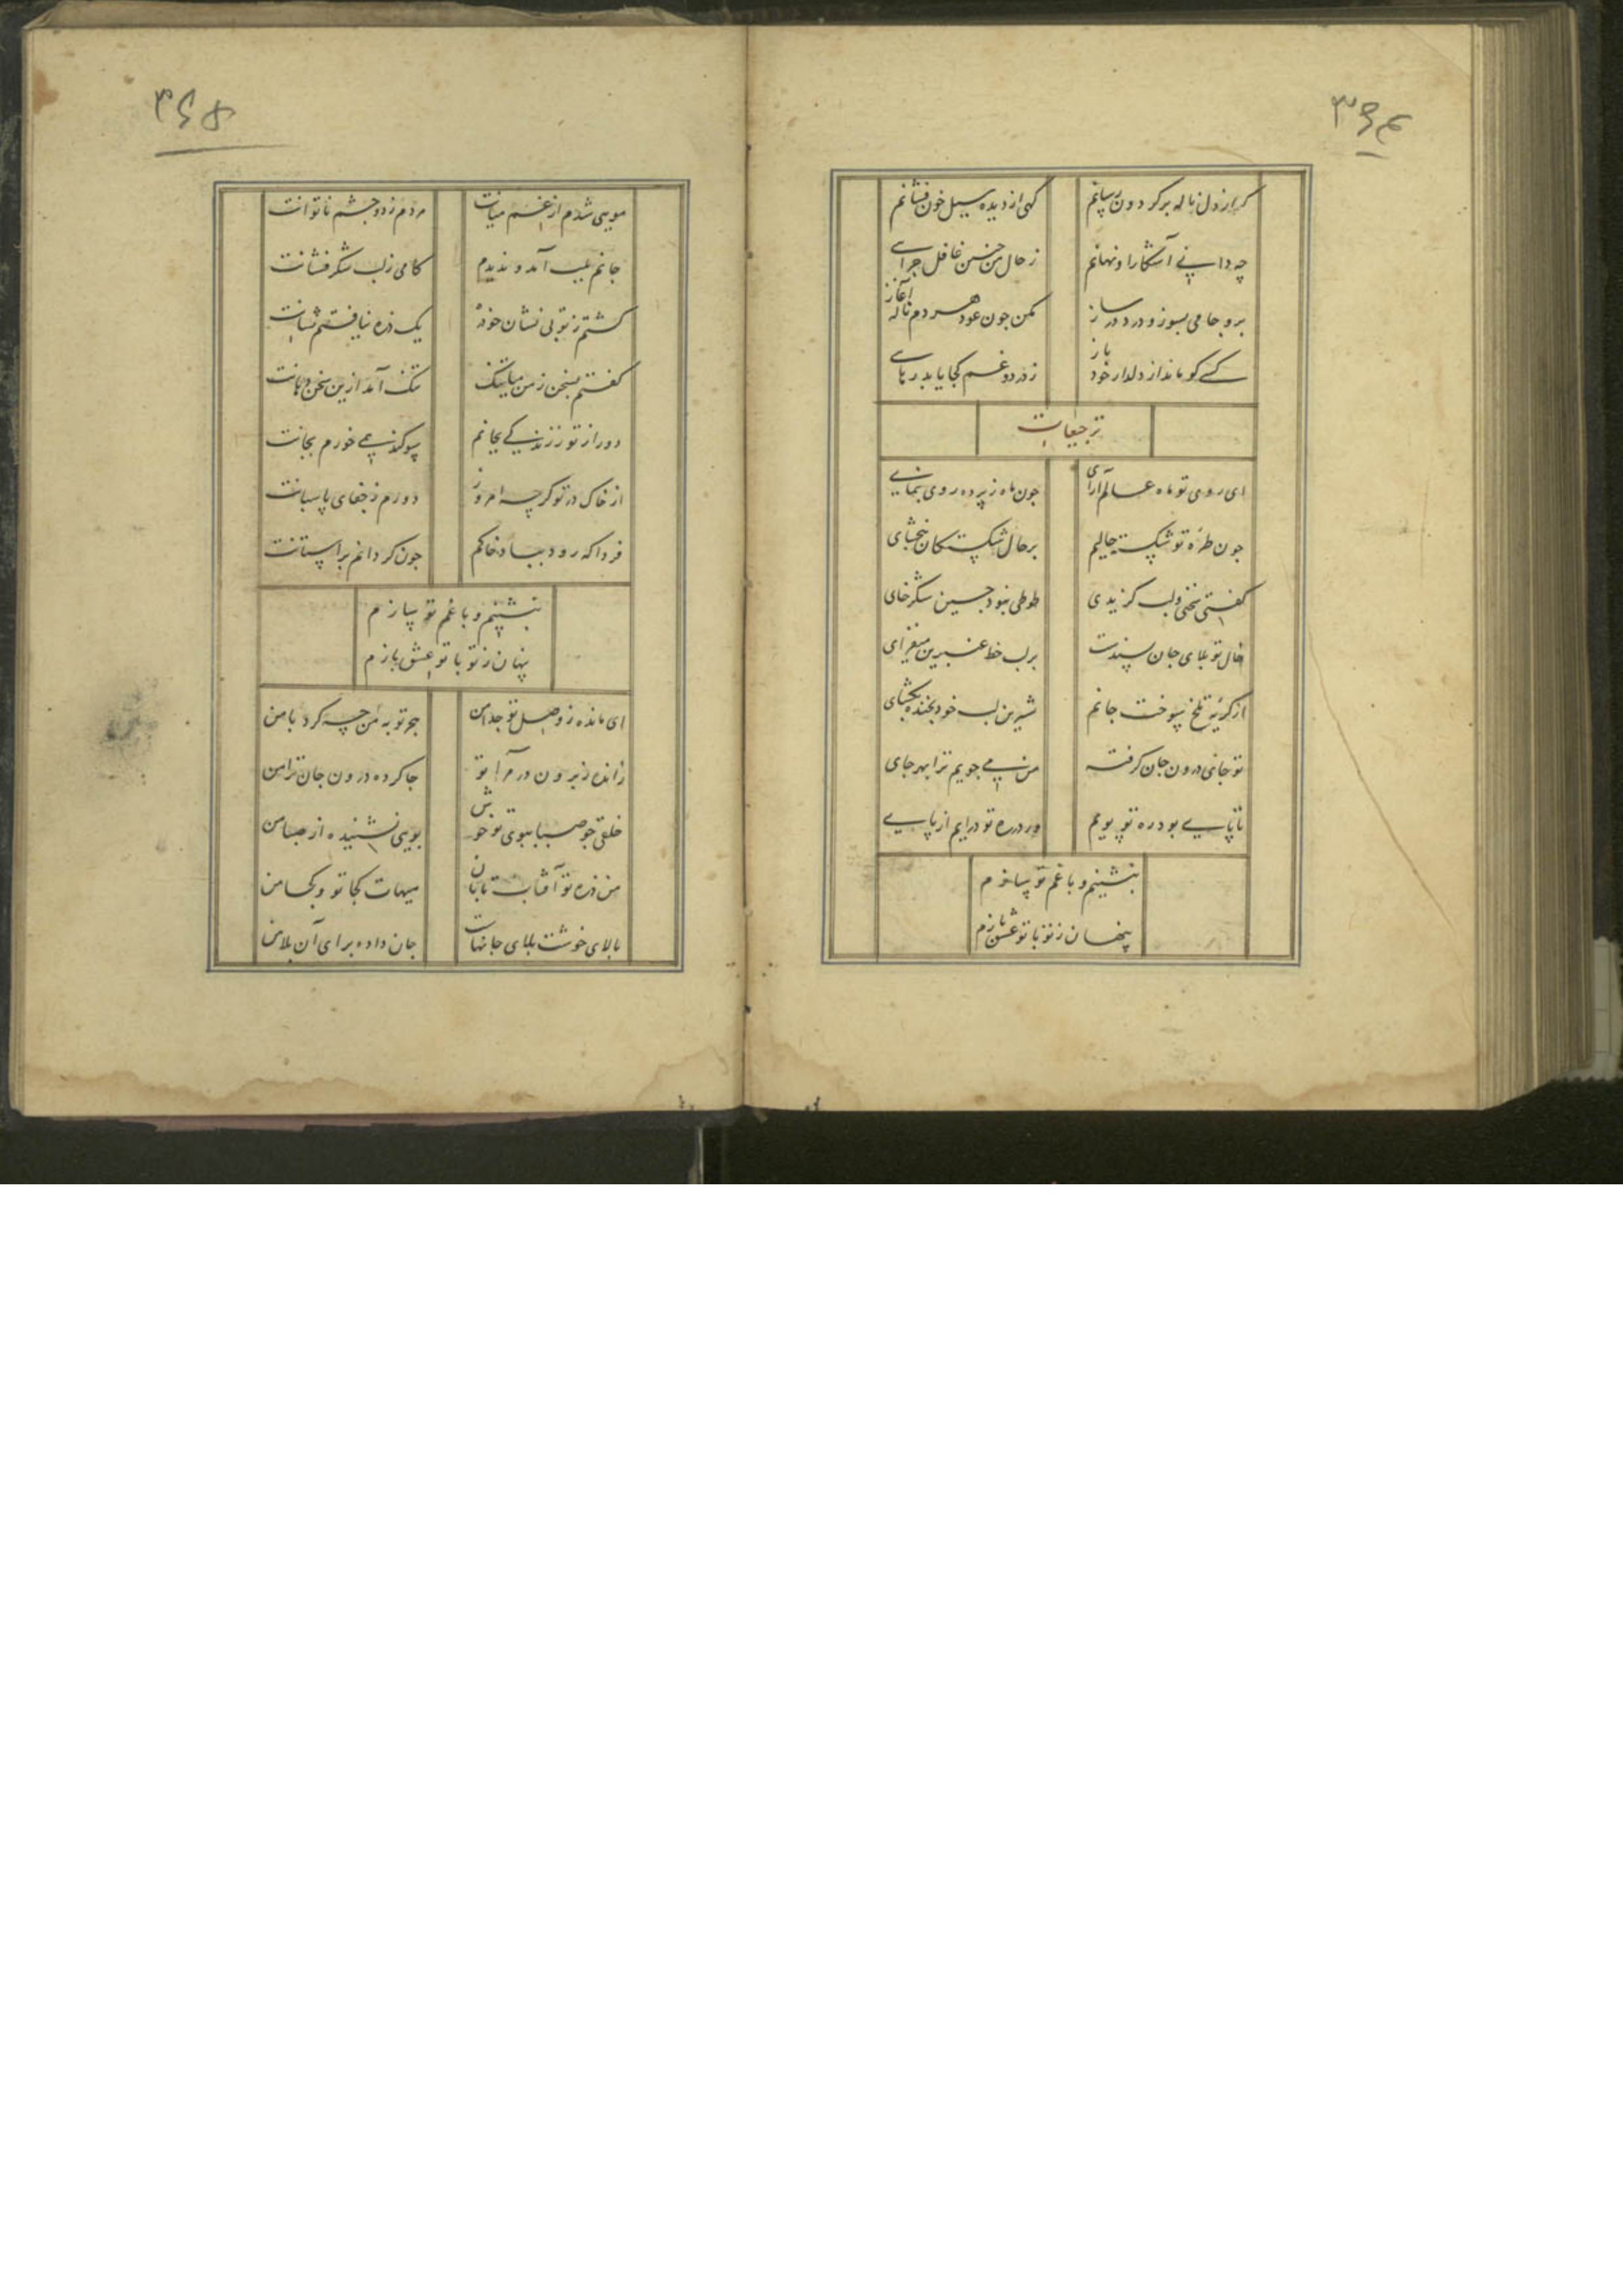 ۳۶۴
گه از دل ناله بر گردون رسانم
گهی از دیده سیل خون فشانم
چه دانی آشکارا و نهانم
ز حال من چنین غافل چرایی
برو جامی بسوز و درد در ساز
مکن چون عود هر دم ناله آغاز
کسی کو ماند از دلدار خود باز
ز درد و غم کجا یابد رهایی
ترجیعات
ای روی تو ماه عالم آرای
چون ماه ز پرده روی بنمای
چون طره تو شکسته حالیم
بر حال شکستگان ببخشای
گفتی سخنی و لب گزیدی
طوطی نبود چنین شکرخای
خال تو بلای جان بسندست
بر لب خط عنبرین میفزای
از گریه تلخ سوخت جانم
شیرین لب خود بخنده بگشای
تو جای درون جان گرفته
من می جویم ترا بهر جای
تا پای بود ره تو پویم
ور در ره تو درایم از پای
بنشینم و با غم تو سازم
پنهان ز تو با تو عشق بازم
۳۶۵
مویی شدم از غم میانت
مردم ز دو چشم ناتوانت
جانم بلب آمد و ندیدم
کامی ز لب شکرفشانت
گشتم ز تو بی نشان خود
یک ذره نیافتم نشانت
گفتم سخن ز من میا تنگ
تنگ آمد ازین سخن دهانت
دور از تو ز زندگی بجانم
سوگند همی خورم بجانت
از خاک در تو گرچه امروز
دورم ز جفای پاسبانت
فردا که رود بباد خاکم
چون گرد آنم بر آستانت
بنشینم و با غم تو سازم
پنهان ز تو با تو عشق بازم
ای مانده ز وصل تو جدا من
هجر تو به من چه کرد با من
رانده ز برون در مرا تو
جا کرده درون جان ترا من
خلقی چو صبا ببوی تو خوش
بویی نشنیده از صبا من
من ذره تو آفتاب تابان
هیهات کجا تو و کجا من
بالای خوشت بلای جانهاست
جان داده برای آن بلا من